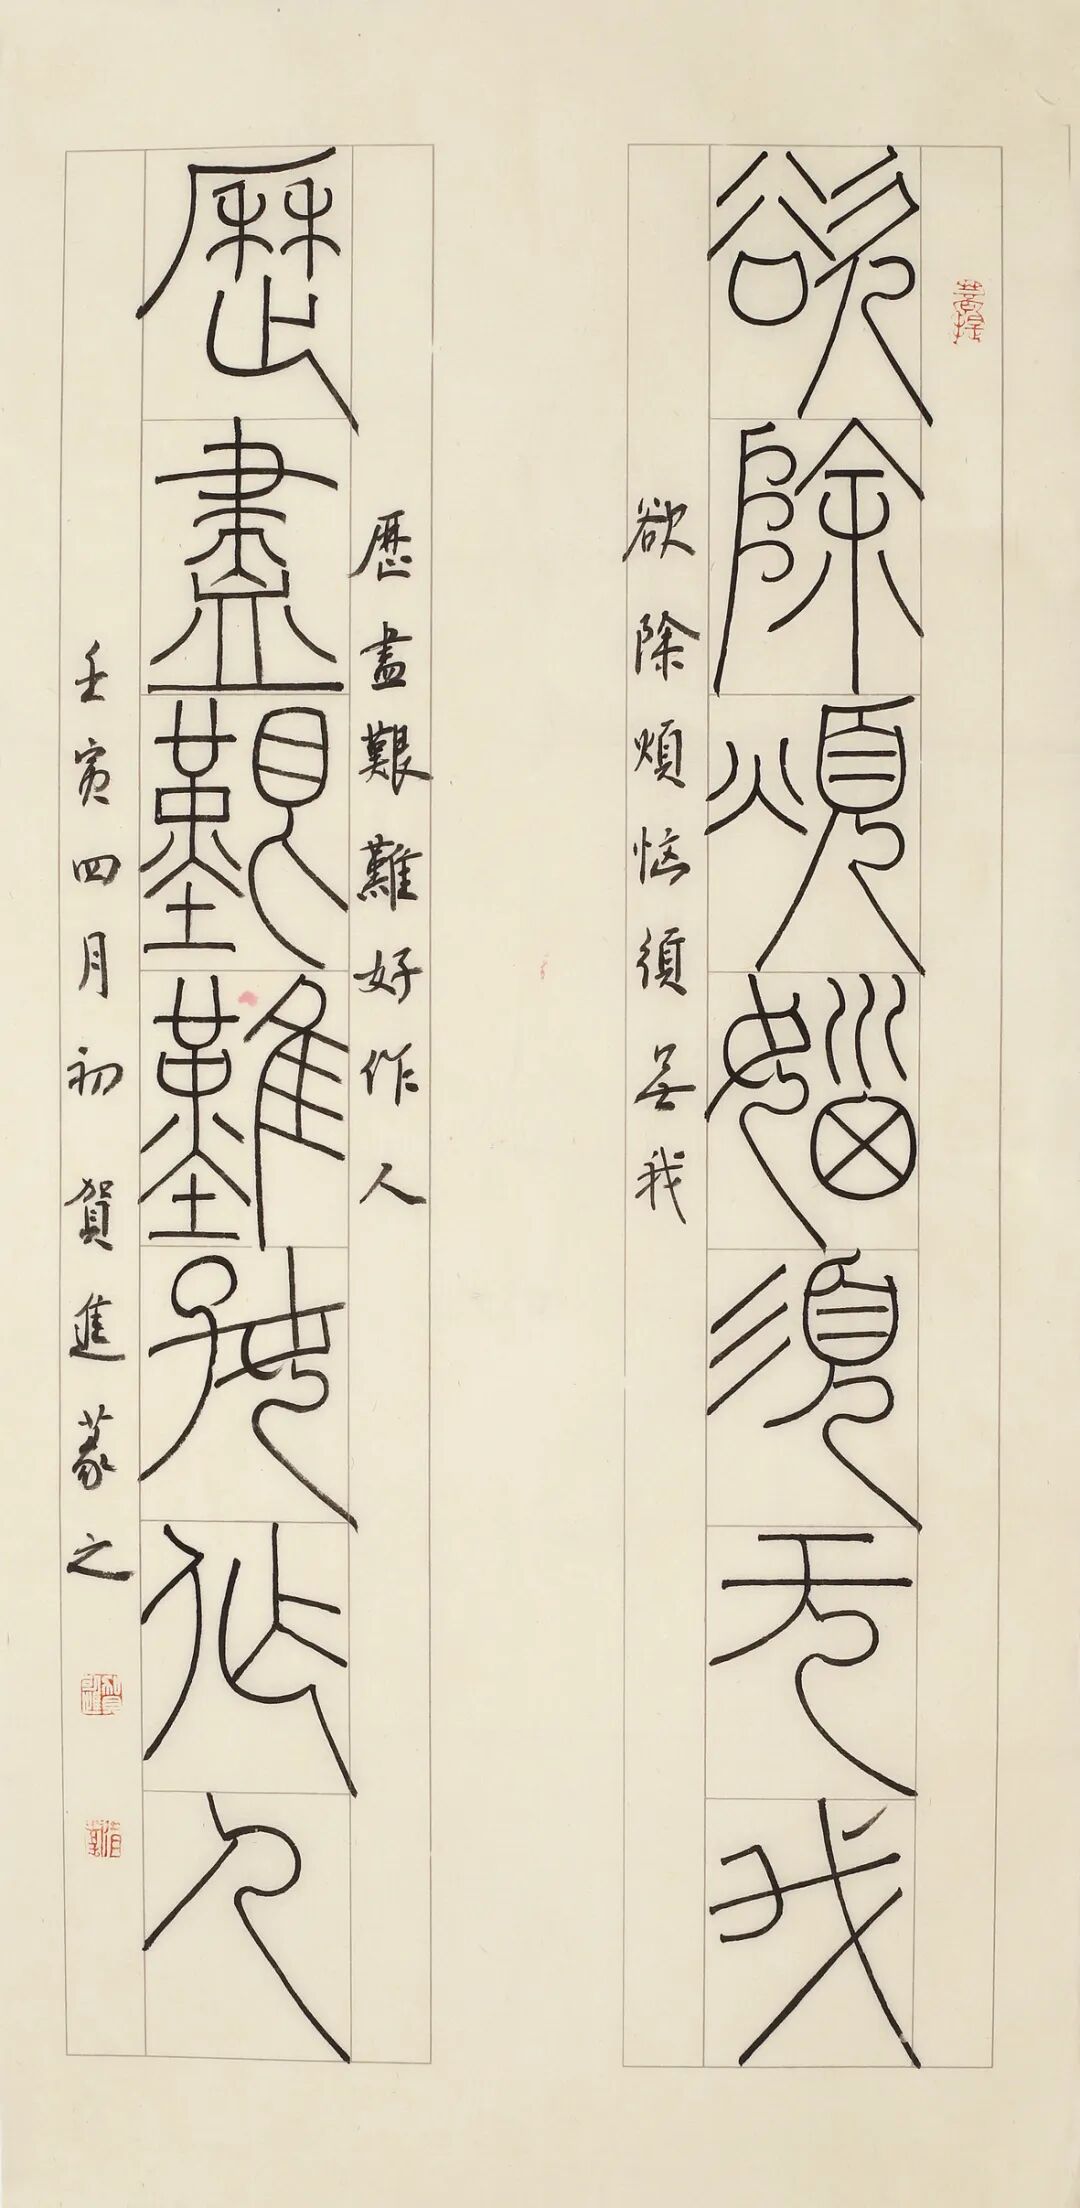 欲除煩惱須无我
欲除煩惱須無我
歷盡艱難好作人
歷盡艱難好作人
壬寅四月初賀進篆之
菩提
賀進